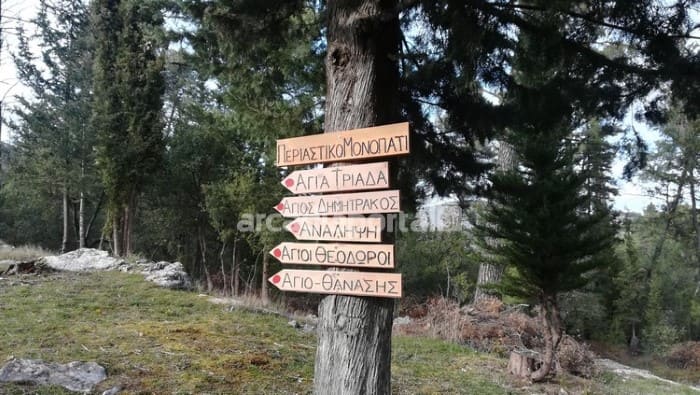 ΠΕΡΙΑΣΤΙΚΟ ΜΟΝΟΠΑΤΙ
ΑΓΙΆ ΤΡΙΑΔΑ
ΑΓΙΟΣ ΔΗΜΗΤΡΑΚΟΣ
ΑΝΑΛΗΨΗ
ΑΓΙΟΙ ΘΕΟΔΩΡΟΙ
ΑΓΙΟ-ΘΑΝΑΣΗΣ